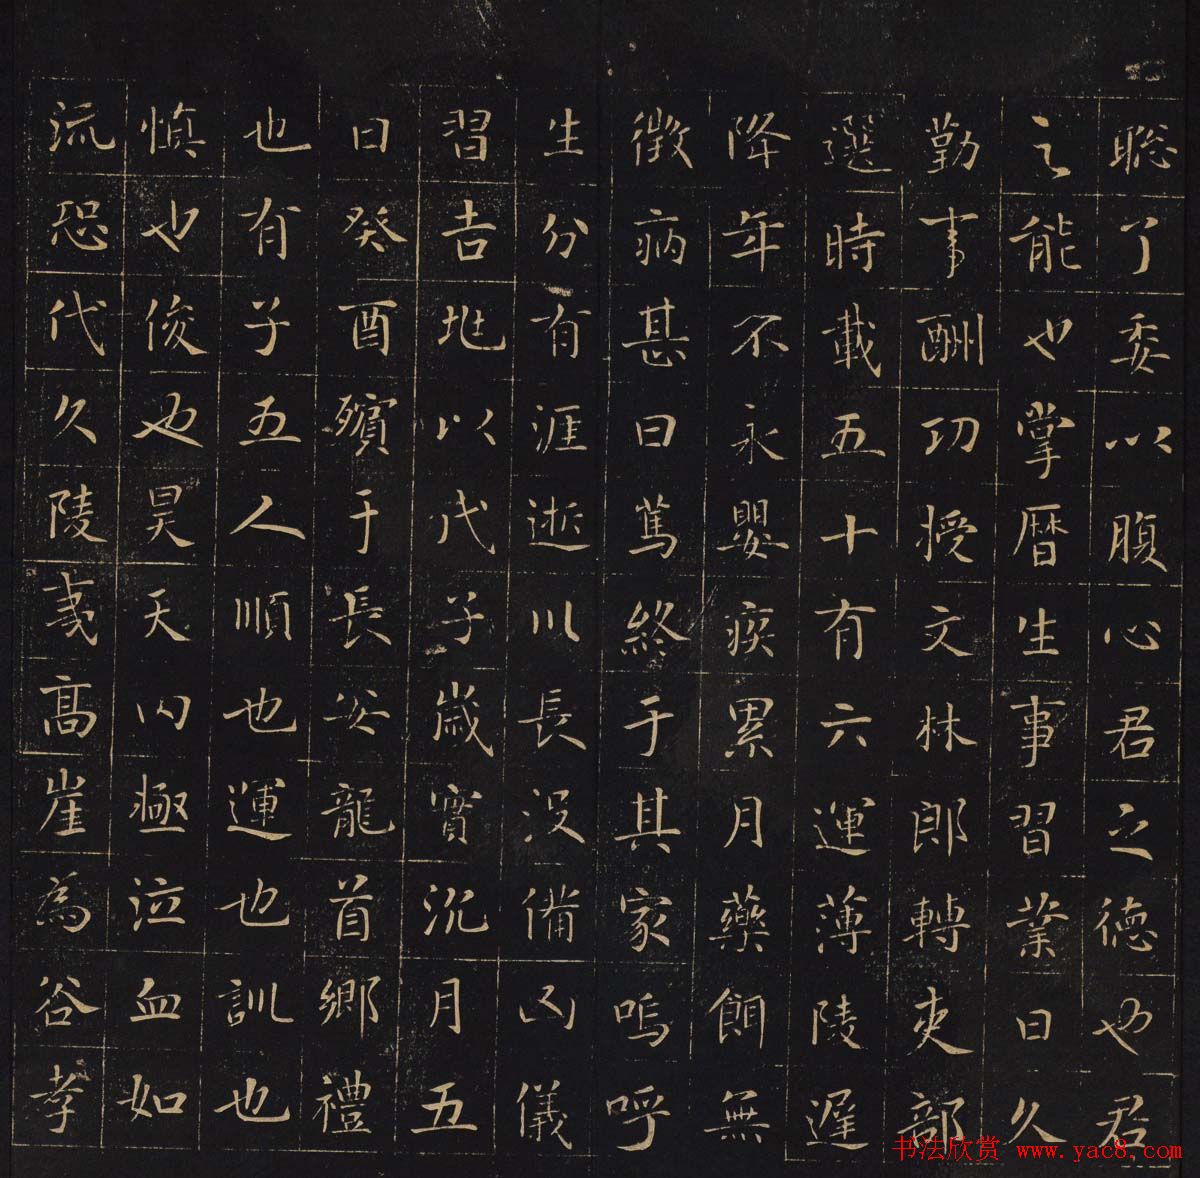 聡了委以腹心君之德也君
之能也掌曆生事習業日久
勤事酬功授文林郎轉吏部
選時載五十有六運薄陵遲
降年不永嬰疾累月藥餌無
徵病甚日篤終于其家嗚呼
生分有涯逝川長没備凶儀
習吉地以戊子歲實沉月五
日癸酉殯于長安龍首鄉禮
也有子五人順也運也訓也
慎也俊也昊天内極泣血如
流恐代久陵夷高崖為谷孝
书法欣赏 www.yac8.com